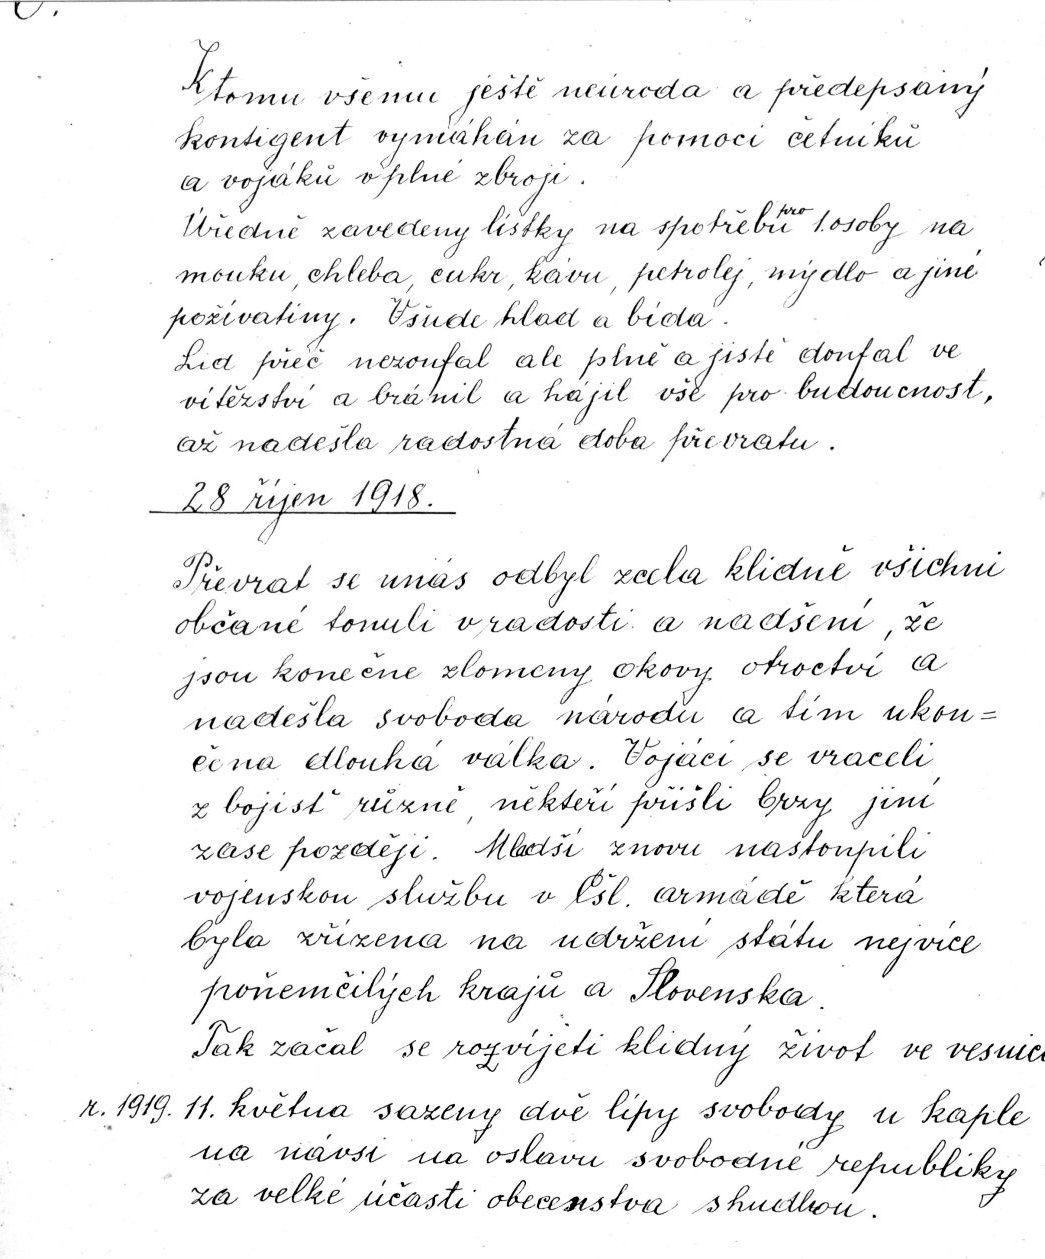 K tomu všemu ještě neúroda a předepsaný
kontigent vymáhán za pomoci četníků
a vojáků v plné zbroji.
Úředně zavedeny lístky na spotřebu pro 1. osoby na
mouku, chleba, cukr, kávu, petrolej, mýdlo a jiné
požívatiny. Všude hlad a bída.
Lid přeč nezoufal ale plně a jistě doufal ve
vítězství a bránil a hájil vše pro budoucnost,
až nadešla radostná doba převratu.
28 říjen 1918.
Převrat se u nás odbyl zcela klidně všichni
občané tonuli v radosti a nadšení, že
jsou konečne zlomeny okovy otroctví a
nadešla svoboda národu a tím ukon=
čena dlouhá válka. Vojáci se vraceli
z bojist různě, někteří přišli brzy jiní
zase později. Mladší znovu nastoupili
vojenskou službu v Čsl. armádě která
byla zřízena na udržení státu nejvíce
poňemčilých krajů a Slovenska.
Tak začal se rozvíjeti klidný život ve vesnici
r. 1919. 11. května sazeny dvě lípy svobody u kaple
na návsi na oslavu svobodné republiky
za velké účasti obecenstva s hudbou.